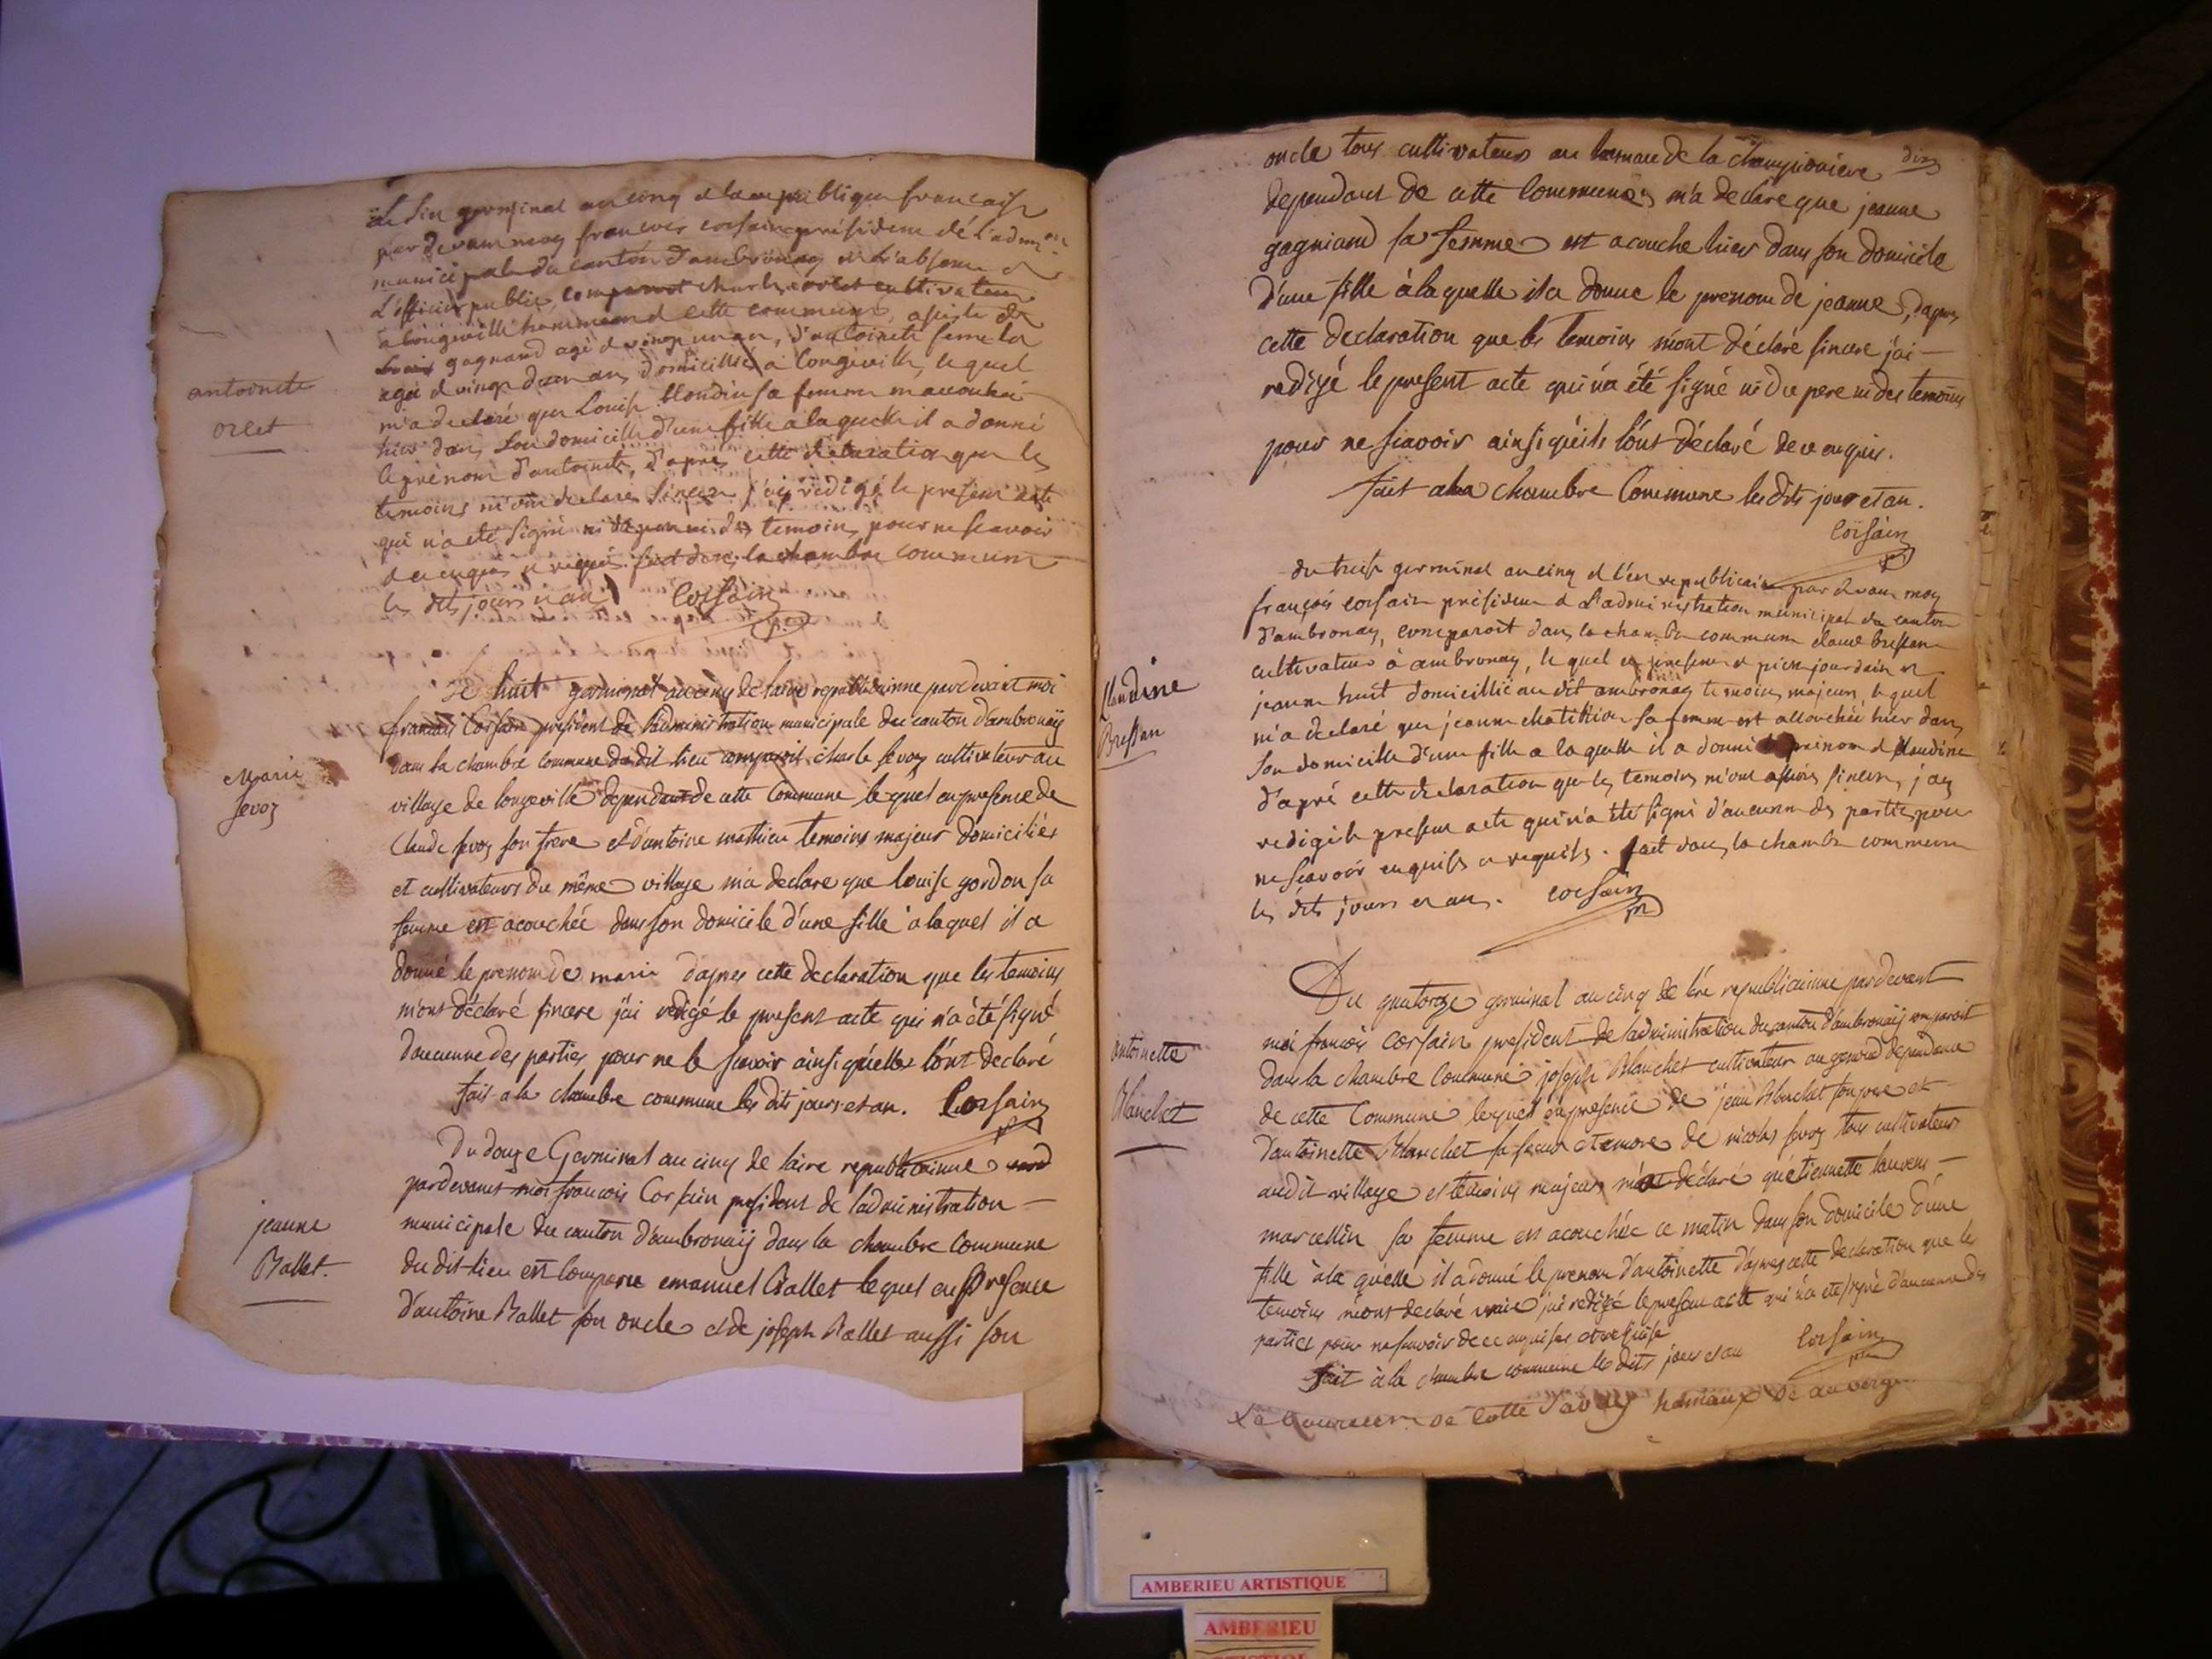 Le six germinal an cinq d la republique francaise
par devam moy francois corsain président dé L'admon
municipale du canton d'ambronay en L'absence d
L'officier public, comparoit charle orlet cultivateur
à longeville hammeau d cette commune, assisté de
Louis gagnand agé d vingt un an, d'antoinete
agée d vingt deux ans domicillié à longeville, le quel
m'a declaré que Louise blondin sa femme m accouchée
hier dans son domicille d'une fille a laquelle il a donné
le prénom d'antoinete, d'apres cette declaration que les
temoins m'ont declaré sincere j'ay redigé le present acte
qui n'a été signé ni du pere ni des temoins pour ne scavoir
de ce enquis et requis. fait dans la chambre commune
les dits jours et an. Corsain
antoinete
orlet
Le huit germinal an cinq de laire republicainne pardevant moi
francois Corsain president de l'administration municipale du canton d'ambronay
dans la chambre commune dudit lieu comparoit charle sevoz cultivateur au
village de longeville dependant de cette Commune lequel en presence de
Claude sevoz son frere et d'antoine mathieu temoins majeur domiciliés
et cultivateurs du même village m'a declare que louise gordon sa
femme est acouchée dans son domicile d'une fille à laquel il a
donné le prenom de marie d'apres cette declaration que les temoins
m'ont déclaré sincere j'ai redigé le present acte qui n'a été signé
d'aucunne des parties pour ne le scavoir ainsi qu'elles l'ont declaré
fait a la chambre commune les dits jours et an. Corsain
Marie
Sevoz
Du douze Germinal an cinq de laire republicainne
pardevant moi francois Corsain president de l'administration
municipale du canton d'ambronaÿ dans la chambre commune
du dit lieu est comparu emanuel Ballet lequel en presence
d'antoine Ballet son oncle et de joseph Ballet aussi son
jeanne
Ballet.
dix
oncle tous cultivateurs au hamau de la championiere
dependant de cette Commune m'a declare que jeanne
gagniand sa femme est acouche hier dans son domicile
d'une fille à laquelle il a donne le prenom de jeanne, dapres
cette declaration que les temoins m'ont déclaré sincere j'ai
redigé le present acte qui n'a été signé ni du pere ni des temoins
pour ne scavoir ainsi qu'ils l'ont déclaré de ce enquis.
fait a la chambre Commune les dits jour et an.
Corsain
du treise germinal an cinq d l'ere republicaine par devam moy
françois corsain président d L'administration municipal du canton
d'ambronay, comparoit dans la chambre commune claude bressan
cultivateur à ambronay, le quel en presence d piere jourdain et
jeanne huit domicillié au dit ambronay temoins majeurs, le quel
m'a declaré que jeanne chatillion sa femme est accouchée hier dans
son domicille d'une fille a la quelle il a donné le prenom d Claudine
d'apré cette declaration que les temoins m'ont assuré sincere, j'ay
redigé le present acte qui n'a été signé d'aucunne des parties pour
ne scavoir enquises et requises. fait dans la chambre commune
les dits jours et an. corsain
Claudine
Bressan
Du quatorze germinal an cinq de lére republicainne pardevant
moi francois Corsain president de l'administration du canton d'ambronaÿ comparoit
dans la chambre Commune joseph Blanchet cultivateur au genoud dependance
de cette Commune lequel en presence de jean Blanchet son pere et
d'antoinette Blanchet sa soeur et encore de nicolas sevoz tous cultivateurs
au dit village et temoins majeurs m'a déclaré qu'etiennette laurens
marcellin sa femme est acouchée ce matin dans son domicile d'une
fille à la qu'elle il a donné le prenom d'antoinette d'apres cette declaration que les
temoins m'ont declaré vraie j'ai redigé le presant acte qui n'a ete signé d'aucunne des
parties pour ne scavoir de ce enquises et requise
fait à la chambre commune les dits jour et an Corsain
antoinette
Blanchet
de cotte hamaux de
AMBERIEU ARTISTIQUE
AMBERIEU
ARTISTIQUE